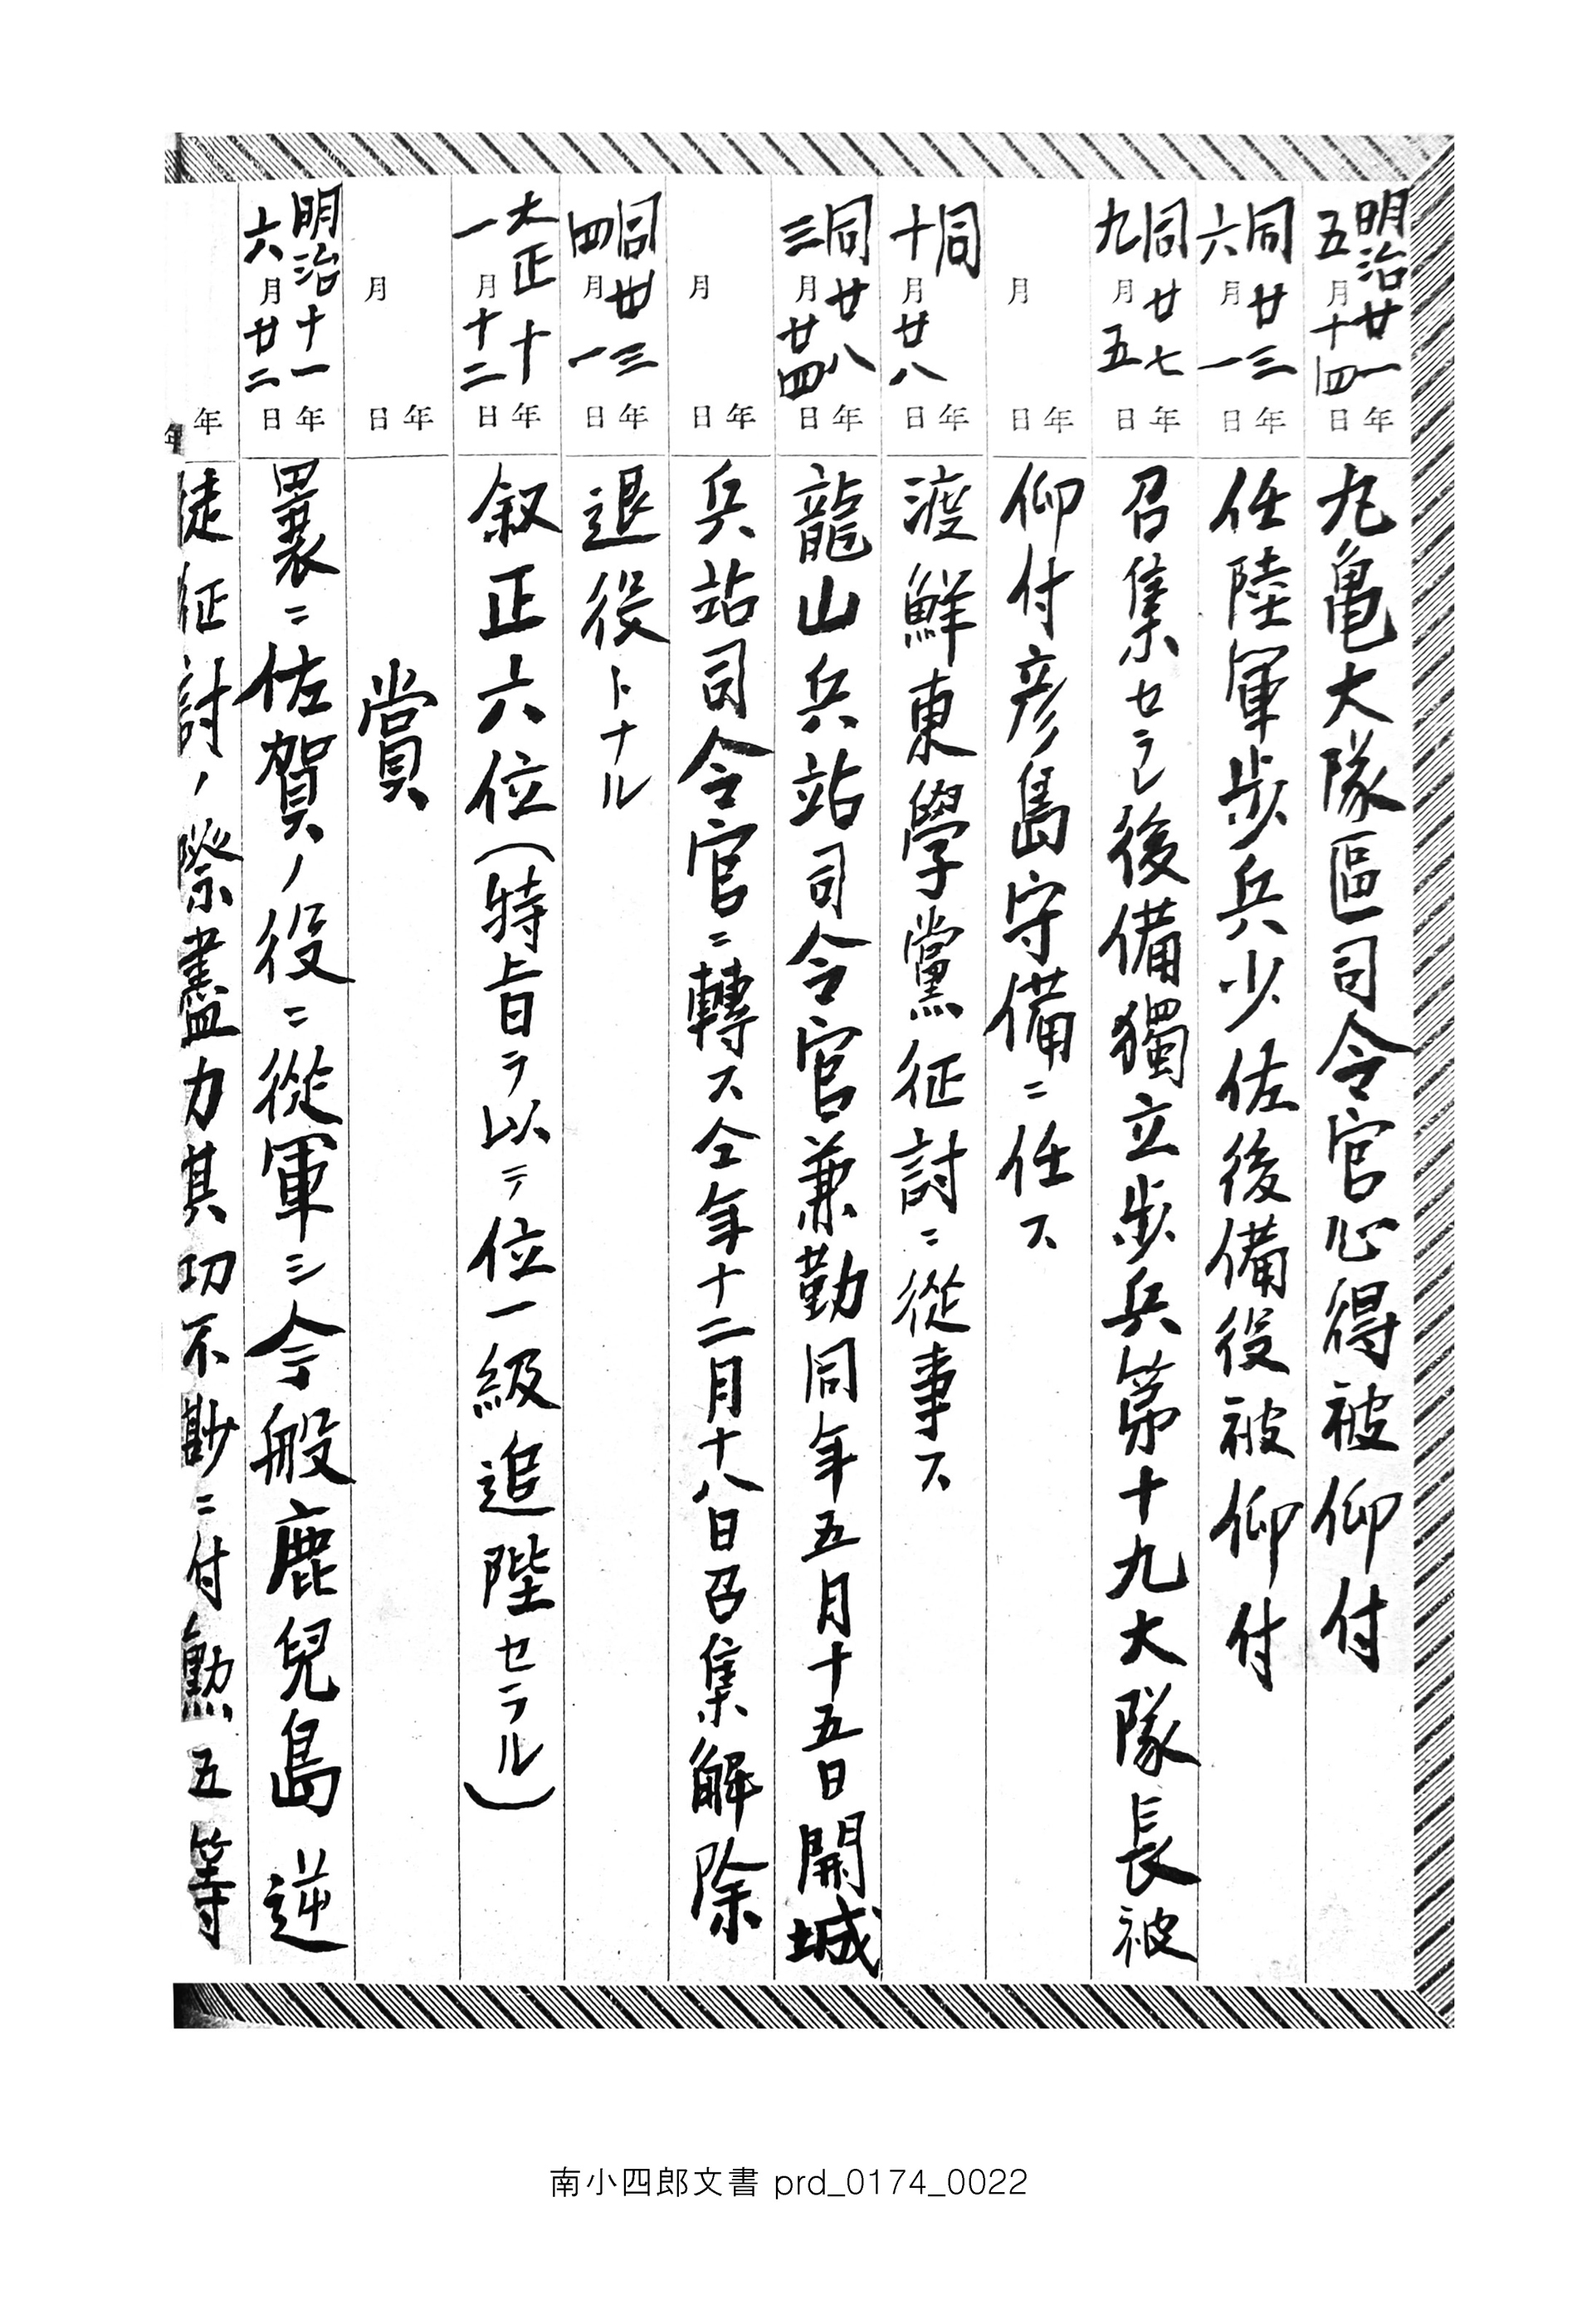 明治廿一年五月十四日 丸亀大隊區司令官心得被仰付
同廿三年六月一日 任陸軍歩兵少佐後備役被仰付
同廿七年九月五日 召集セラレ後備獨立歩兵第十九大隊長被
年月日 仰付彦島守備ニ任ス
同年十月廿八日 渡鮮東學黨征討ニ從事ス
同廿八年三月廿四日 龍山兵站司令官兼勤同年五月十五日開城
年月日 兵站司令官ニ轉ス仝年十二月十八日召集解除
同卅三年四月一日 退役トナル
大正十年一月十二日 叙正六位(特旨ヲ以テ位一級追陞セラル)
年月日 賞
明治十一年六月廿二日 曩ニ佐賀ノ役ニ從軍シ今般鹿兒島逆
年 徒征討ノ際盡力其功不尠ニ付勲五等
年
南小四郎文書 prd_0174_0022